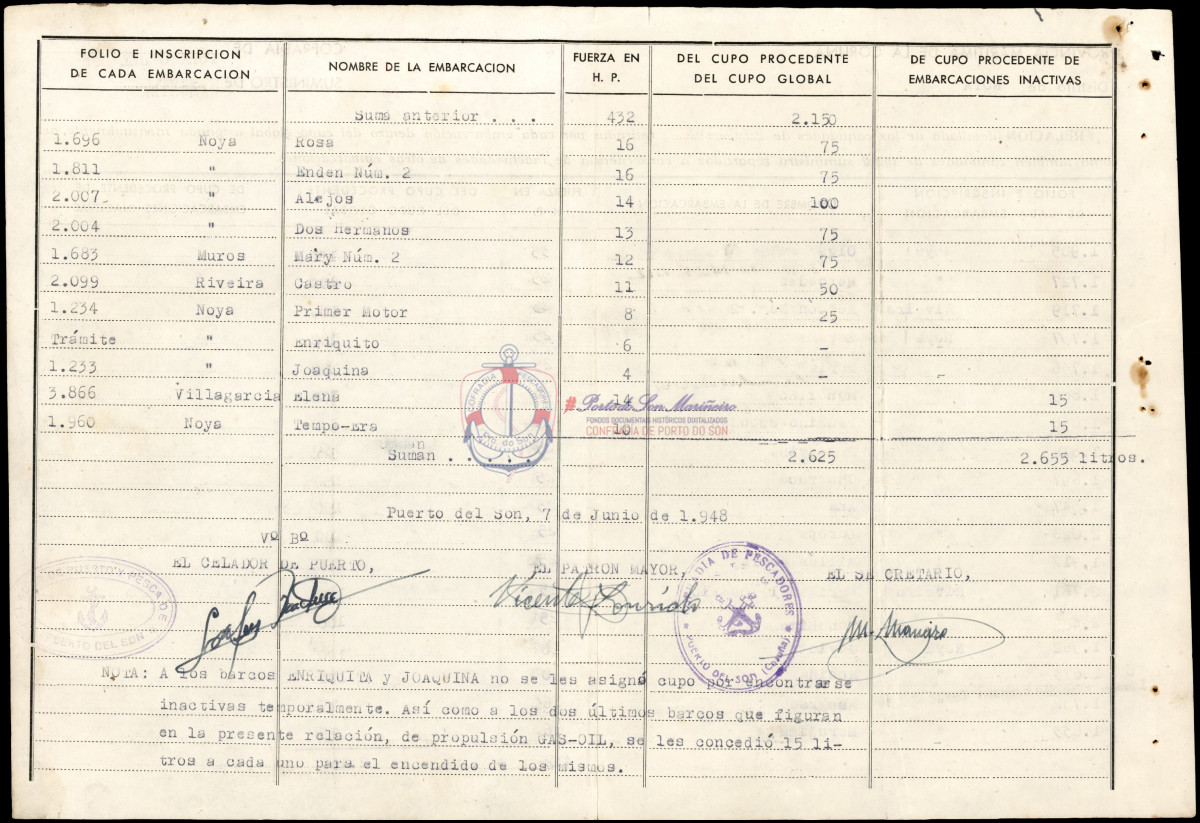 FOLIO E INSCRIPCION DE CADA EMBARCACION NOMBRE DE LA EMBARCACION FUERZA EN H. P. DEL CUPO PROCEDENTE DEL CUPO GLOBAL DE CUPO PROCEDENTE DE EMBARCACIONES INACTIVAS
Suma anterior . . . 432 2.150
1.696 Noya Rosa 16 75
1.811 " Enden Núm. 2 16 75
2.007 " Alejos 14 100
2.004 " Dos Hermanos 13 75
1.683 Muros Mary Núm. 2 12 75
2.099 Riveira Castro 11 50
1.234 Noya Primer Motor 8 25
Trámite " Enriquito 6 -
1.233 " Joaquina 4 -
3.866 Villagarcia Elena 14 15
1.960 Noya Tempo-Era 10 15
Suman . . . . . 2.625 2.655 litros.
COFRADIA PESCADORES
Pto. do Son
#Porto do Son Mariñeiro
FONDOS DOCUMENTAIS HISTÓRICOS DIXITALIZADOS
CONFRARÍA DE PORTO DO SON
Puerto del Son, 7 de Junio de 1.948
Vº Bº
EL CELADOR DE PUERTO, EL PATRON MAYOR, EL SECRETARIO,
Vicente
COFRADIA DE PESCADORES
PUERTO DEL SON (Coruña)
PESCA DE
PUERTO DEL SON
NOTA: A los barcos ENRIQUITA y JOAQUINA no se les asignó cupo por encontrarse
inactivas temporalmente. Así como a los dos últimos barcos que figuran
en la presente relación, de propulsión GAS-OIL, se les concedió 15 li-
tros a cada uno para el encendido de los mismos.